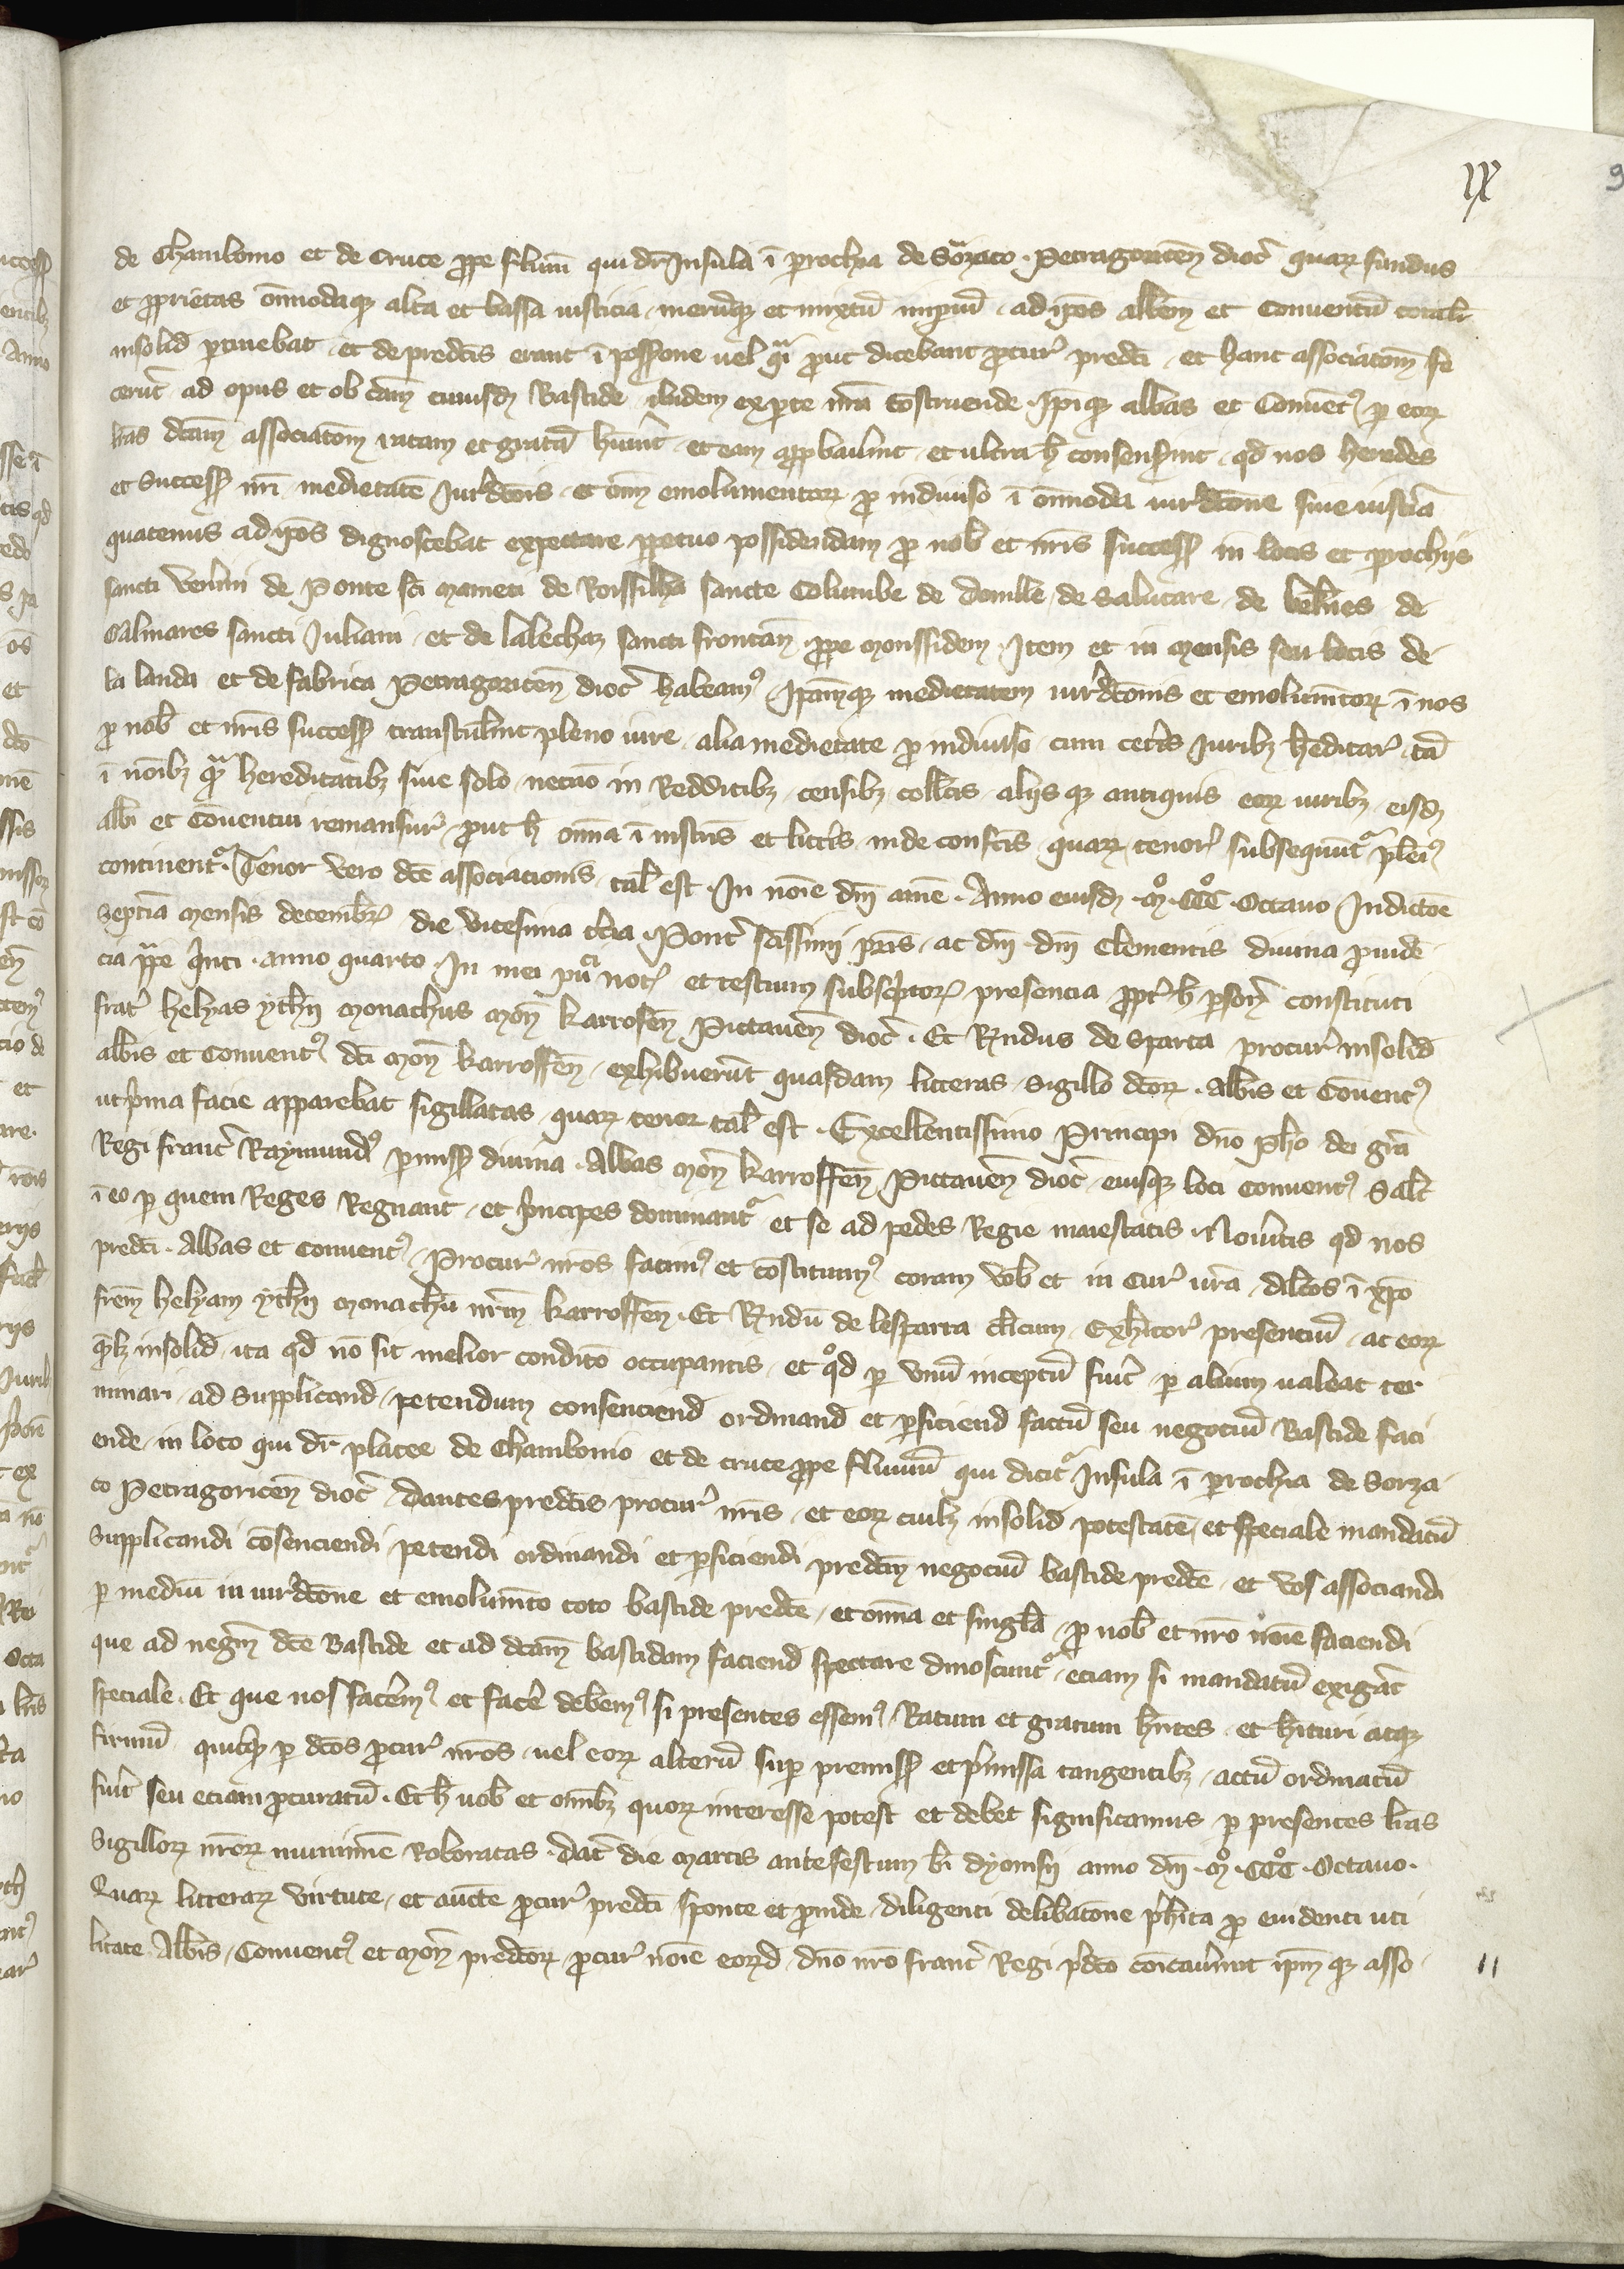 IX
9
de Chambonio et de Cruce ꝓpe fluuiũ qui dr̃ Insula ĩ ꝑrochia de Sorzaco. Petragoriceñ dioc̃ quaꝝ fundus
et ꝓprietas om̃imodaqꝫ alta et bassa iusticia. merũqꝫ et mixtũ imperiũ. ad ip̃os abb̃em et Conuentũ
insolid̃ ꝑtinebat. et de predc̃is erant ĩ poss̃ione uel q̃i ꝓut dicebant ꝓcur̃ predc̃i. et hanc associac̃om̃ fe
cerũt ad opus et ob cãm cuiusdẽ Bastide ibidem ex ꝑte nr̃a cõstruende. Ip̃iqꝫ abbas et Conuentꝰ ꝑ eoꝝ
lr̃as dc̃am associac̃om̃ ratam et gratã h̃uerũt. et eam apꝓbauer̃nt. et ultra h̃ consenser̃nt. qd̃ nos heredes
et success̃ nr̃i medietatẽ Iur̃dc̃ois. et om̃ emolumentoꝝ ꝓ indiuiso ĩ om̃imoda iur̃dc̃one siue iusticia
quatenus ad ip̃os dignoscebat expectare ꝑpetuo possidendam ꝓ nob̃ et nr̃is success̃ in locis et ꝑrochiis
sancti de Ponte sc̃i Mameti de Roussilha sancte Columbe de de Salutare. de de
Calmares sancti Iuliani. et de lalechaꝝ sancti frontañ ꝓpe Monssidem. Item et in Mensis seu locis de
la landa et de fabrica Petragoriceñ dioc̃ habeamꝰ. Ip̃amqꝫ medietatem iur̃dc̃onis et emolumẽtoꝝ ĩ nos
ꝓ nob̃ et nr̃is success̃ transtuler̃nt pleno iure. alia medietate ꝓ indiuiso. cum ceter̃is Iuribꝫ h̃editar̃. tã
ĩ hereditatibꝫ siue solo. necnõ in Redditibꝫ. censibꝫ collc̃is aliisqꝫ antiquis eoꝝ iuribꝫ. eisdẽ
abb̃i et Cõuentui remansur̃. ꝓut h̃ om̃ia ĩ instr̃is et litter̃is inde confc̃is quaꝝ tenor̃ subsequũtᷣ pleniꝰ
continentᷣ. Tenor vero dc̃e associacionis tal̃ est. In noĩe dñi amẽ. Anno eiusdẽ. M̊. CCC̊. Octauo Indictõe
septĩa mensis decembr̃ die vicesima tercia. Pont̃ sc̃issimi pr̃is. ac dñi dñi Clementis diuina ꝓuidẽ
cia pape Qinti. anno quarto. In mei not̃ et testium subscriptor̃ presencia ꝓpt̃ h̃ ꝑsonr̃ constituti
frat̃ helyas ythr̃ Monachus Moñ Karrofeñ Pictaueñ dioc̃. Et Rñdus de Sparra procur̃ insolid̃
abb̃is et Conuentꝰ dc̃i Moñ Karroffeñ. exhibuerũt quasdam litteras. sigillo dc̃oꝝ. abb̃is et Cõuentꝰ
ut prima facie apparebat sigillatas. quaꝝ tenor tal̃ est. Excellentissimo Principi dño ph̃o dei gr̃a
Regi franc̃ Raymundꝰ ꝑmiss̃ diuina. Abbas Moñ Karroffeñ Pictaueñ dioc̃. eiusqꝫ loci Conuentꝰ Salt̃
ĩ eo ꝑ quem Reges Regnant. et principes dominantᷣ et se ad pedes Regie maiestatis. Noueritis qd̃ nos
predc̃i. Abbas et Conuentꝰ. Procur̃ nr̃os facimꝰ et cõstituimꝰ coram vob̃ et in Cur̃ vr̃a. dilc̃os ĩ xp̃o
fr̃em helyam ythr̃ Monachũ nr̃m Karroffeñ. Et Rñdũ de lesparra cl̃icum. Exhitor̃ presenciũ. ac eoꝝ
qꝫlibꝫ insolid̃. ita qd̃ nõ sit melior condic̃o occupantis. et qd̃ ꝑ vnũ inceptũ fuer̃it ꝑ alium ualeat ter
minari. ad Supplicand̃. petendum consenciend̃ ordinand̃ et ꝑficiend̃ factũ seu negociũ Bastide faci
ende. in loco qui dr̃ placee de Chambonio et de cruce ꝓpe fluuiũ qui dicitᷣ Insula ĩ ꝑrochia de Sorza
co Petragoriceñ dioc̃. Dantes predc̃is procur̃ nr̃is. et eoꝝ cuilibꝫ insolid̃ potestatẽ. et speciale mandatũ
Supplicandi cõsenciendi. petendi ordinandi et ꝑficiendi predc̃m negociũ bastide predc̃e. et vos associandi
ꝑ mediũ in iur̃dc̃one et emolumẽto toto bastide predc̃e. et om̃ia et singl̃a. ꝓ nob̃ et nr̃o noĩe faciendi
que ad neg̃m dc̃e Bastide et ad dc̃am bastidam faciend̃ spectare dinoscuntᷣ. eciam si mandatũ exigãt
speciale. Et que nos facer̃emꝰ et facer̃e deberemꝰ si presentes essemꝰ. Ratum et gratum h̃ntes. et h̃ituri atqꝫ
firmũ quicqꝫ ꝑ dc̃os ꝓcur̃ nr̃os. uel eoꝝ alterũ suꝑ premiss̃ et premissa tangentibꝫ. actũ ordinatũ
fuer̃it seu eciam ꝓcuratũ. Et h̃ uob̃ et om̃ibꝫ quoꝝ interesse potest et debet significamus ꝑ presentes lr̃as
Sigilloꝝ nr̃oꝝ munimĩe Roboratas. Dat̃ die Martis ante festum b̃i dyonisij anno dñi. M̊. CCC̊. Octauo.
Quaꝝ litteraꝝ virtute. et auc̃te ꝓcur̃ predc̃i sponte et ꝓuide. diligenti delib̃ac̃one preh̃ita ꝓ euidenti uti
litate. Abb̃is. Conuentꝰ et Moñ predc̃oꝝ. ꝓcur̃ noĩe eoꝝd̃. dño nr̃o franc̃ Regi predc̃o ip̃mqꝫ asso
11